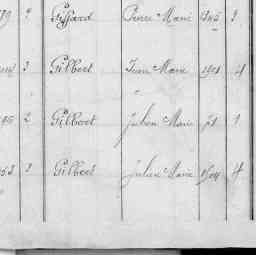 79 9 Giffard Pierre Marie 1905 3
3 Gilbert Jean Marie 1901 4
2 Gilbert Julien Marie 1
53 Gilbert Julien Marie 4